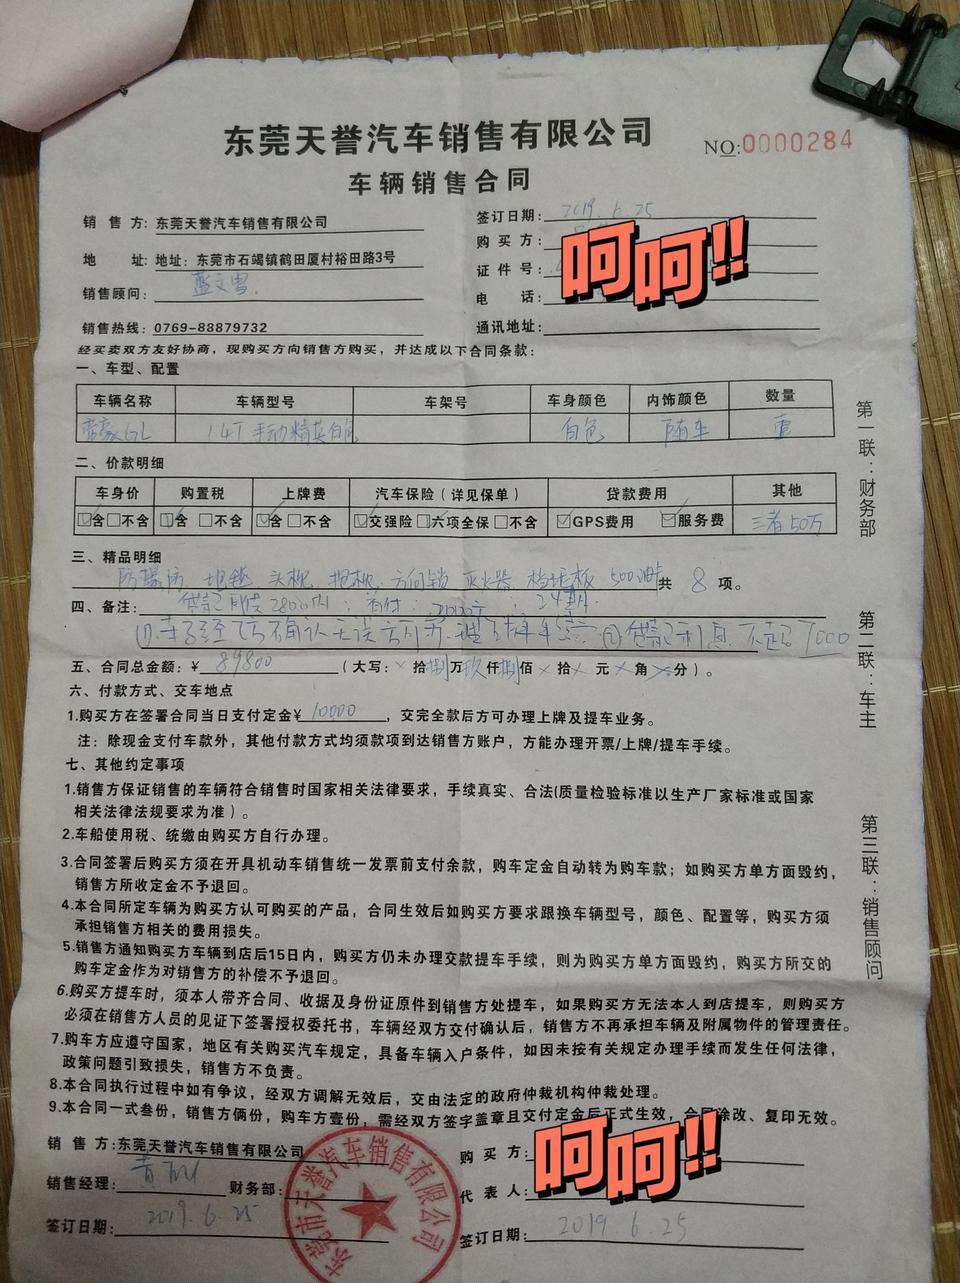 东莞天誉汽车销售有限公司
NO:0000284
车辆销售合同
销售方:东莞天誉汽车销售有限公司
签订日期:2019.6.25
购买方:
呵呵!!
地址:地址:东莞市石竭镇鹤田厦村裕田路3号
证件号:
销售顾问:
电话:
销售热线:0769-88879732
通讯地址:
经买卖双方友好协商,现购买方向销售方购买,并达成以下合同条款:
一、车型、配置
车辆名称 车辆型号 车架号 车身颜色 内饰颜色 数量
帝豪GL 1.4T手动精英白色 白色 随车 壹
二、价款明细
车身价 购置税 上牌费 汽车保险(详见保单) 贷款费用 其他
☑含□不含 ☑含□不含 ☑含□不含 ☑交强险☑六项全保□不含 ☑GPS费用 ☑服务费 三者50万
三、精品明细
防爆膜 地毯 头枕 抱枕 方向锁 灭火器 挡泥板 500油卡共8项。
四、备注:
24期
五、合同总金额:¥89800(大写:×拾捌万玖仟捌佰×拾×元×角×分)。
六、付款方式、交车地点
1.购买方在签署合同当日支付定金¥10000,交完全款后方可办理上牌及提车业务。
注:除现金支付车款外,其他付款方式均须款项到达销售方账户,方能办理开票/上牌/提车手续。
七、其他约定事项
1.销售方保证销售的车辆符合销售时国家相关法律要求,手续真实、合法(质量检验标准以生产厂家标准或国家
相关法律法规要求为准)。
2.车船使用税、统缴由购买方自行办理。
3.合同签署后购买方须在开具机动车销售统一发票前支付余款,购车定金自动转为购车款;如购买方单方面毁约,
销售方所收定金不予退回。
4.本合同所定车辆为购买方认可购买的产品,合同生效后如购买方要求跟换车辆型号,颜色、配置等,购买方须
承担销售方相关的费用损失。
5.销售方通知购买方车辆到店后15日内,购买方仍未办理交款提车手续,则为购买方单方面毁约,购买方所交的
购车定金作为对销售方的补偿不予退回。
6.购买方提车时,须本人带齐合同、收据及身份证原件到销售方处提车,如果购买方无法本人到店提车,则购买方
必须在销售方人员的见证下签署授权委托书,车辆经双方交付确认后,销售方不再承担车辆及附属物件的管理责任。
7.购车方应遵守国家,地区有关购买汽车规定,具备车辆入户条件,如因未按有关规定办理手续而发生任何法律,
政策问题引致损失,销售方不负责。
8.本合同执行过程中如有争议,经双方调解无效后,交由法定的政府仲裁机构仲裁处理。
9.本合同一式叁份,销售方俩份,购车方壹份,需经双方签字盖章且交付定金后正式生效,合同涂改、复印无效。
销售方:东莞天誉汽车销售有限公司
购买方:
呵呵!!
销售经理:
财务部:
代表人:
签订日期:2019.6.25
签订日期:2019.6.25
东莞市天誉汽车销售有限公司
第一联:财务部
第二联:车主
第三联:销售顾问